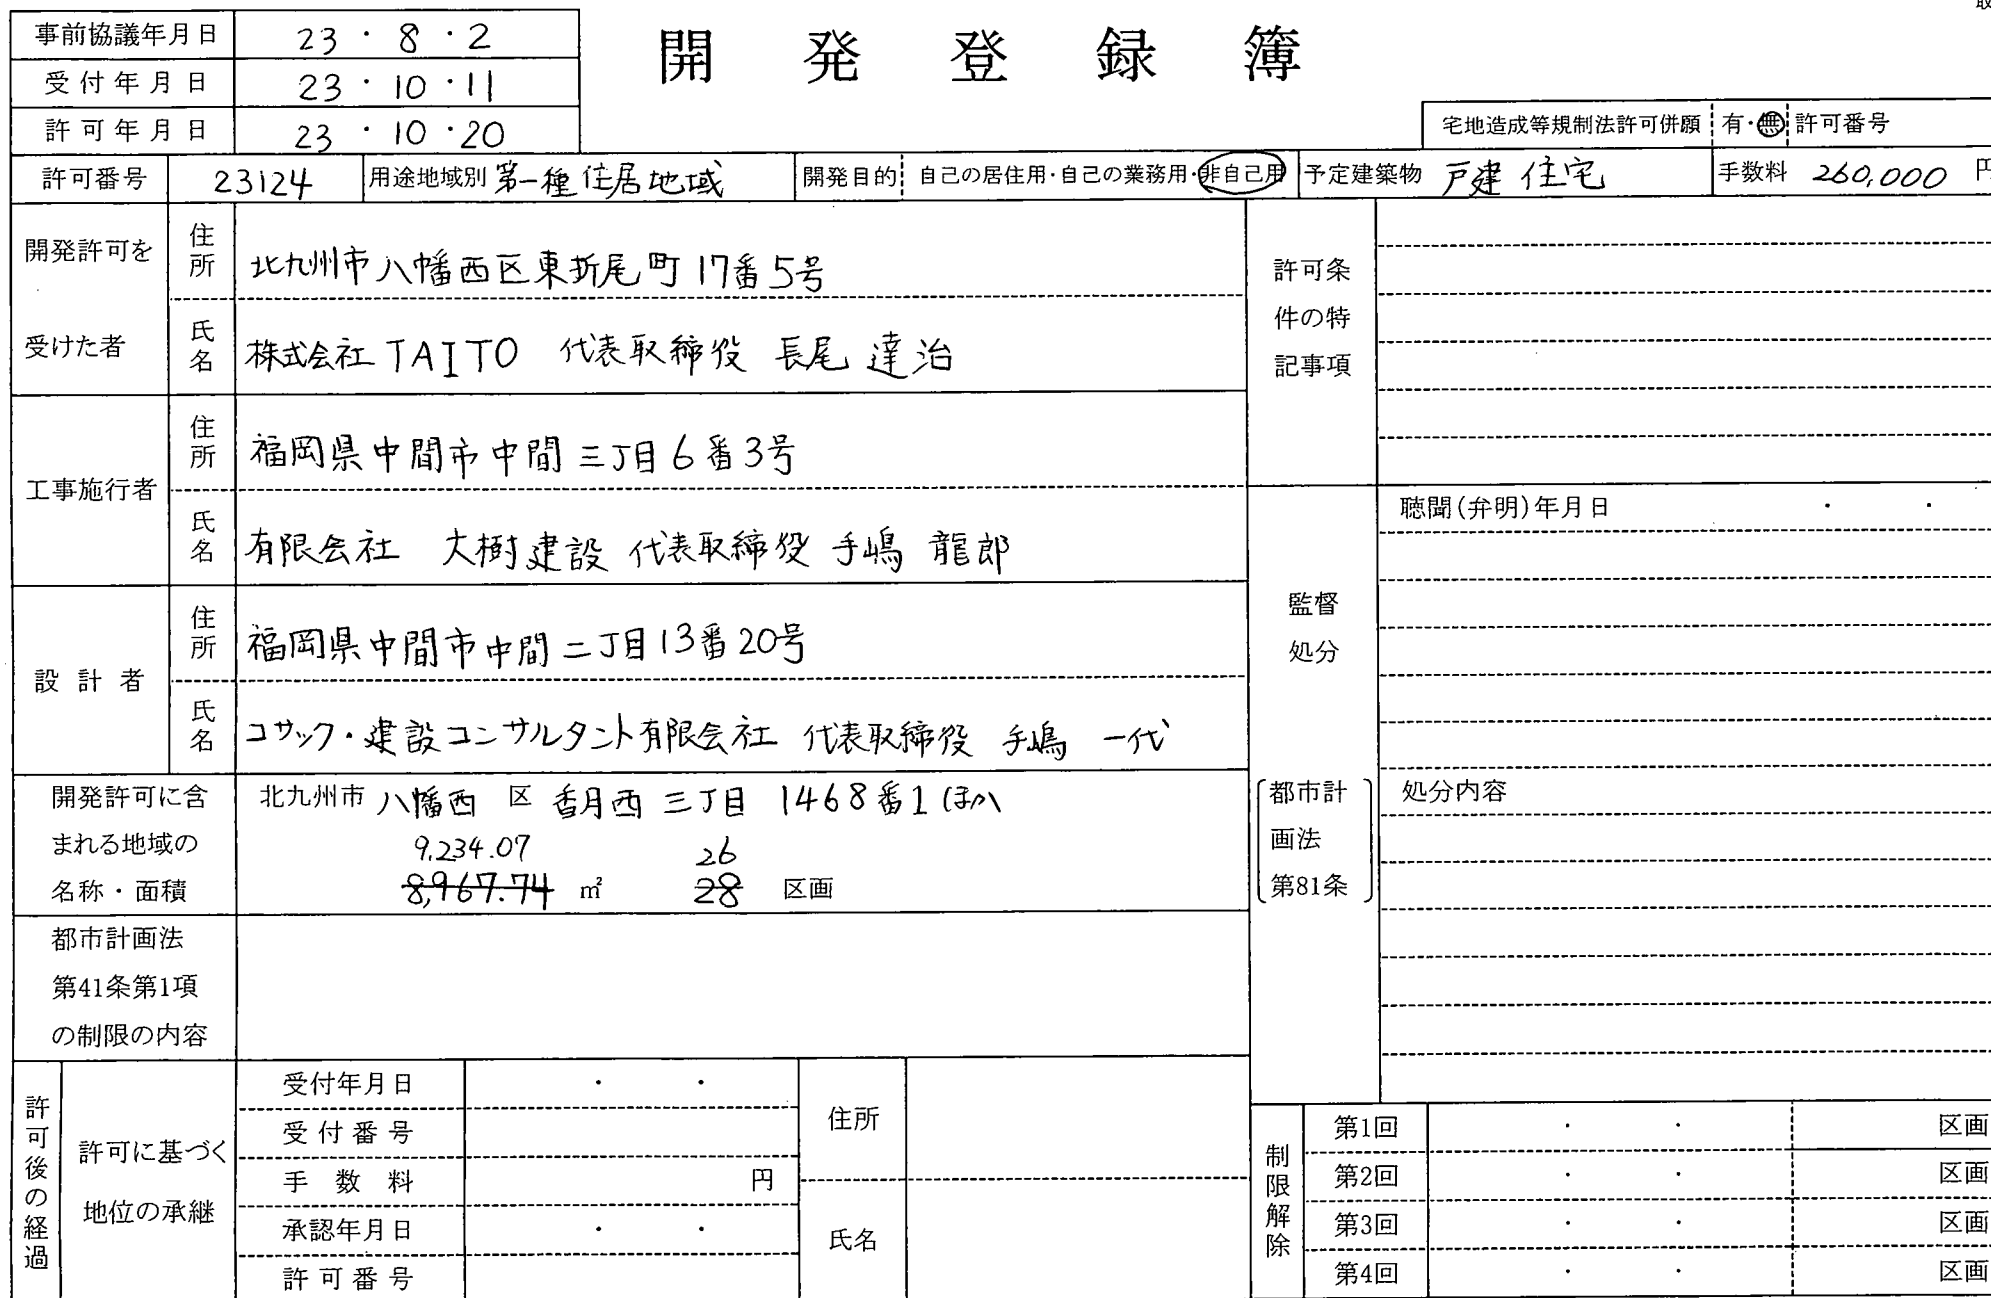 事前協議年月日 23・8・2
開発登録簿
受付年月日 23・10・11
許可年月日 23・10・20
宅地造成等規制法許可併願 有・無 許可番号
許可番号 23124 用途地域別 第一種住居地域 開発目的 自己の居住用・自己の業務用・非自己用 予定建築物 戸建住宅 手数料 260,000 円
開発許可を受けた者
住所 北九州市八幡西区東折尾町17番5号
氏名 株式会社TAITO 代表取締役 長尾 達治
工事施行者
住所 福岡県中間市中間三丁目6番3号
氏名 有限会社 大樹建設 代表取締役 手嶋 龍郎
設計者
住所 福岡県中間市中間二丁目13番20号
氏名 コサック・建設コンサルタント有限会社 代表取締役 手嶋 一代
開発許可に含まれる地域の名称・面積
北九州市 八幡西 区 香月西 三丁目 1468番1ほか
9,234.07 26
8,967.74 ㎡ 28 区画
都市計画法
第41条第1項
の制限の内容
許可後の経過
許可に基づく
地位の承継
受付年月日 ・ ・
受付番号
手数料 円
承認年月日 ・ ・
許可番号
住所
氏名
許可条
件の特
記事項
監督
処分
都市計
画法
第81条
聴聞(弁明)年月日 ・ ・
処分内容
制限解除
第1回 ・ ・ 区画
第2回 ・ ・ 区画
第3回 ・ ・ 区画
第4回 ・ ・ 区画